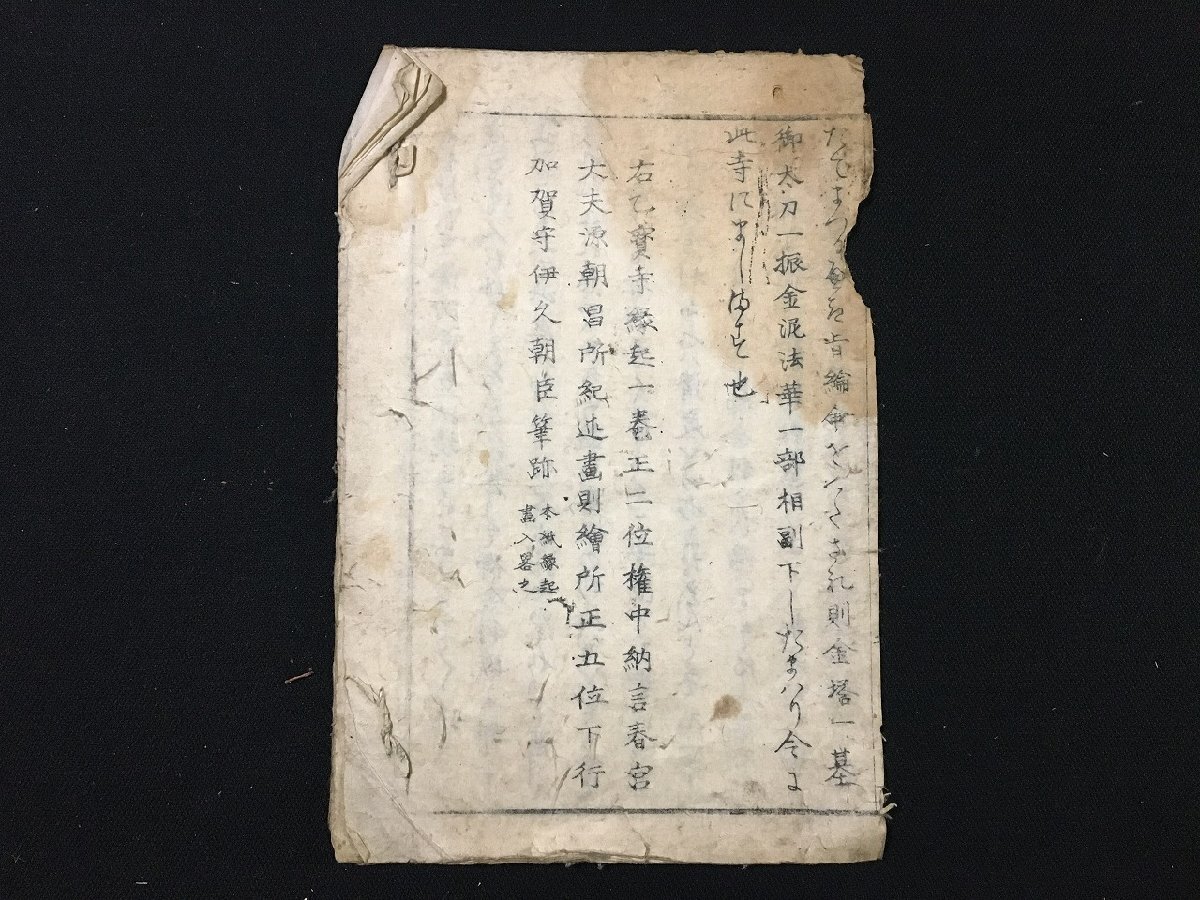 たてまつる 旨綸命を 則金塔一基
御太刀一振金泥法華一部相副下したまハり今に
此寺に まします也
右乙寶寺縁起一巻正二位權中納言春宮
大夫源朝昌所紀述畫則繪所正五位下行
加賀守伊久朝臣筆跡
本紙縁起
畫入畧之